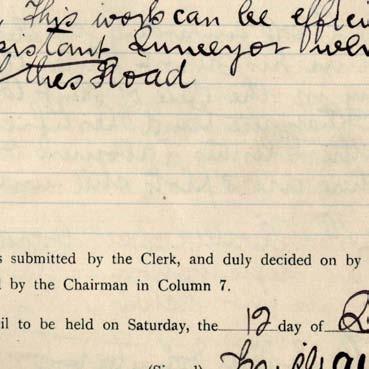 This work can be effici
sistant Surveyor
this Road
s submitted by the Clerk, and duly decided on by
l by the Chairman in Column 7.
il to be held on Saturday, the 12 day of